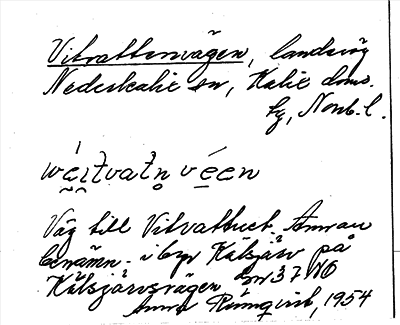 Vitvattenvägen, landsväg
Nederkalix sn, Kalix doms.
hg, Norrb. l.
wéitvatn véen
Väg till Vitvattnet. Annan
benämn. i byn Kälsjärv på
Kälsjärvsvägen bn 3746
Anna Rimqvist, 1954